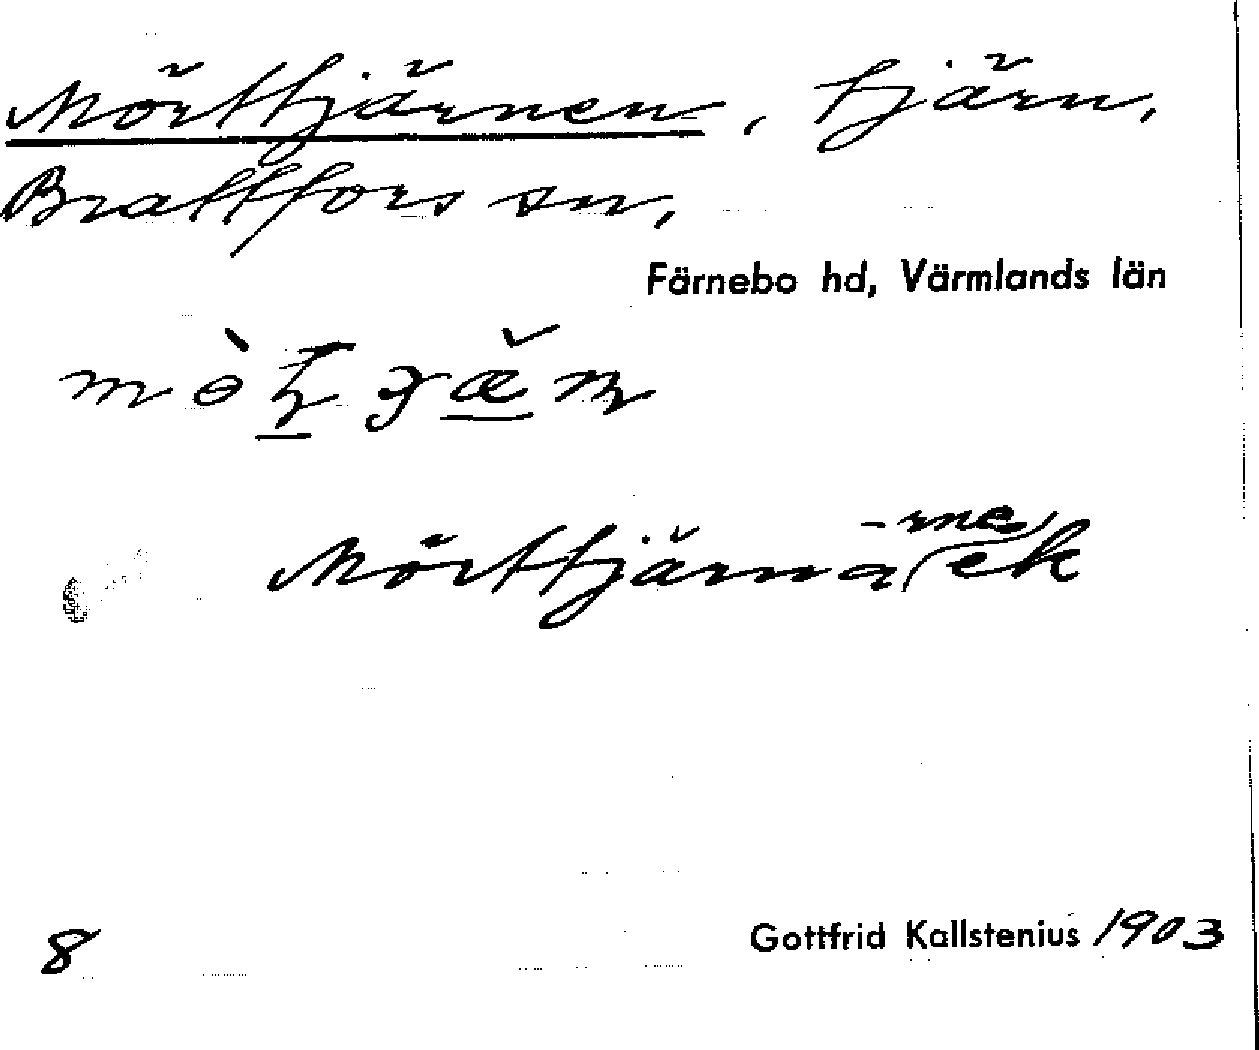 Mörttjärnen, tjärn,
Brattfors sn,
Färnebo hd, Värmlands län
Mörttjärna -rne, ek
8
Gottfrid Kallstenius 1903